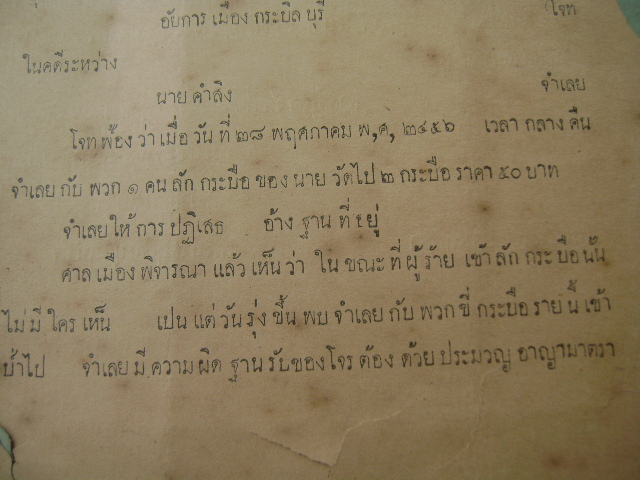 อัยการ เมือง กระบิล บุรี โจท
ในคดีระหว่าง
นาย คำสิง จำเลย
โจท พ้อง ว่า เมื่อ วัน ที่ ๒๘ พฤศภาคม พ,ศ, ๒๔๕๖ เวลา กลาง คืน
จำเลย กับ พวก ๑ คน ลัก กระบือ ของ นาย วัดไป ๒ กระบือ ราคา ๕๐ บาท
จำเลย ให้ การ ปฏิเสธ อ้าง ฐาน ที่ อยู่
ศาล เมือง พิจารณา แล้ว เห็น ว่า ใน ขณะ ที่ ผู้ ร้าย เข้า ลัก กระ บือ นั้น
ไม่ มี ใคร เห็น เปน แต่ วัน รุ่ง ขึ้น พบ จำเลย กับ พวก ขี่ กระบือ ราย นี้ เข้า
บ้ำไป จำเลย มี ความ ผิด ฐาน รับของ โจร ต้อง ด้วย ประมวญ อาญา มาตรา